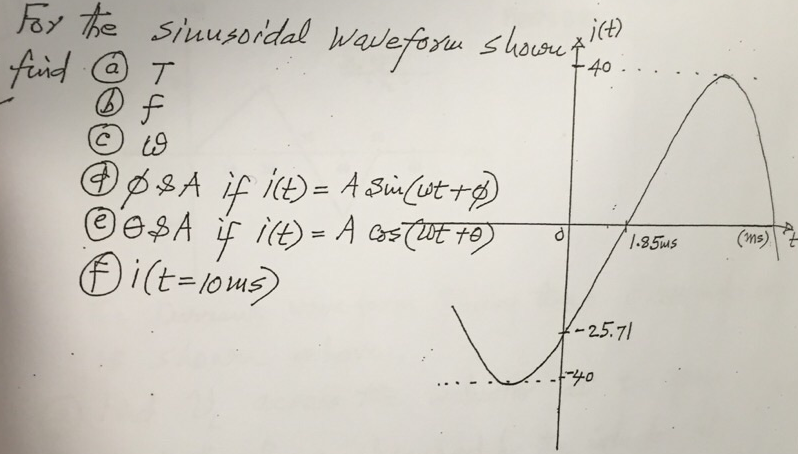 For the sinusoidal waveform shown
find (a) T
(b) f
(c) ω
(d) φ & A if i(t) = A sin(ωt+φ)
(e) θ & A if i(t) = A cos(ωt+θ)
(f) i(t=10ms)
i(t)
40
0
1.85ms
(ms)
t
-25.71
-40